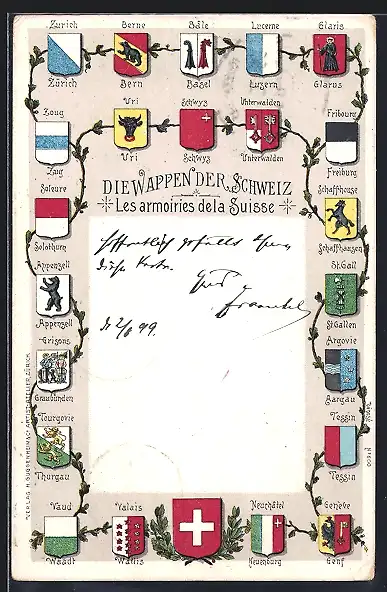 Zurich Berne Bâle Lucerne Glaris
Zürich Bern Basel Luzern Glarus
Zoug Uri Schwyz Unterwalden Fribourg
Zug Uri Schwyz Unterwalden Freiburg
DIE WAPPEN DER SCHWEIZ
Les armoiries de la Suisse
Soleure Schaffhouse
Solothurn Schaffhausen
Appenzell St.Gall
Appenzell St.Gallen
Grisons Argovie
Graubünden Aargau
Tourgovie Tessin
Thurgau Tessin
Vaud Valais Neuchâtel Genève
Waadt Wallis Neuenburg Genf
Hoffentlich gefällt Ihnen
diese Karte.
VERLAG H. GUGGENHEIM & Co
ZÜRICH